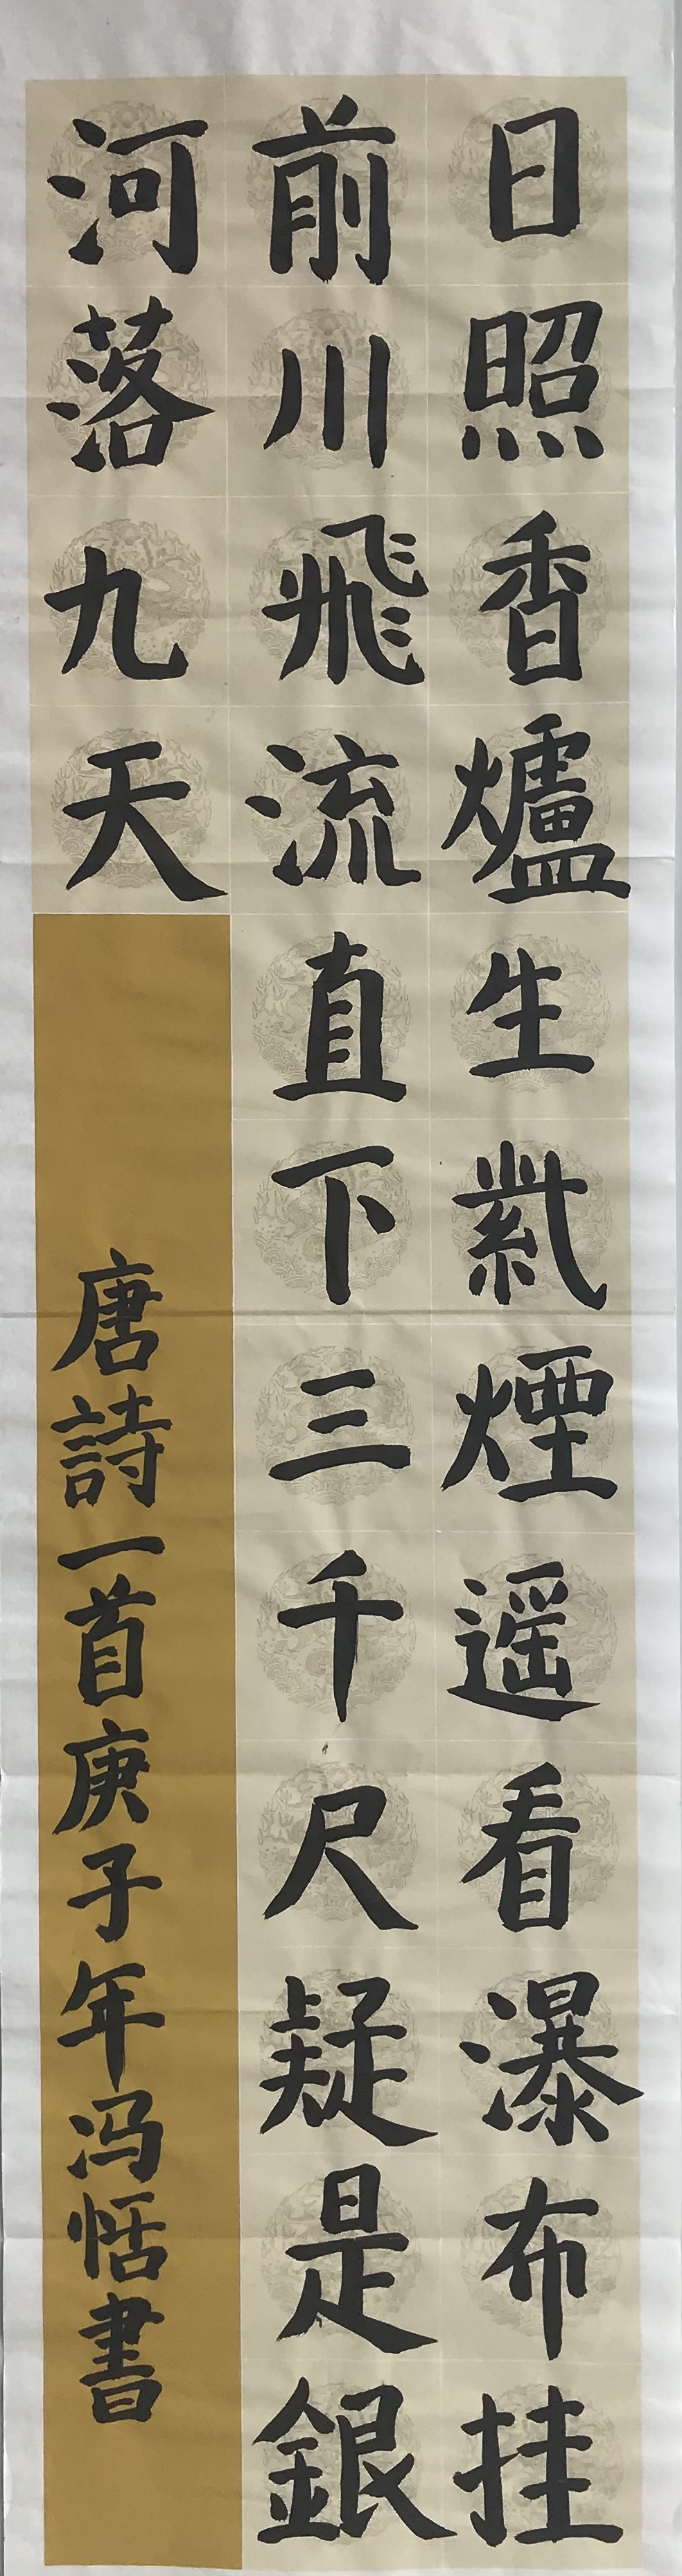 日照香爐生紫煙遥看瀑布挂
前川飛流直下三千尺疑是銀
河落九天
唐詩一首庚子年冯恬書